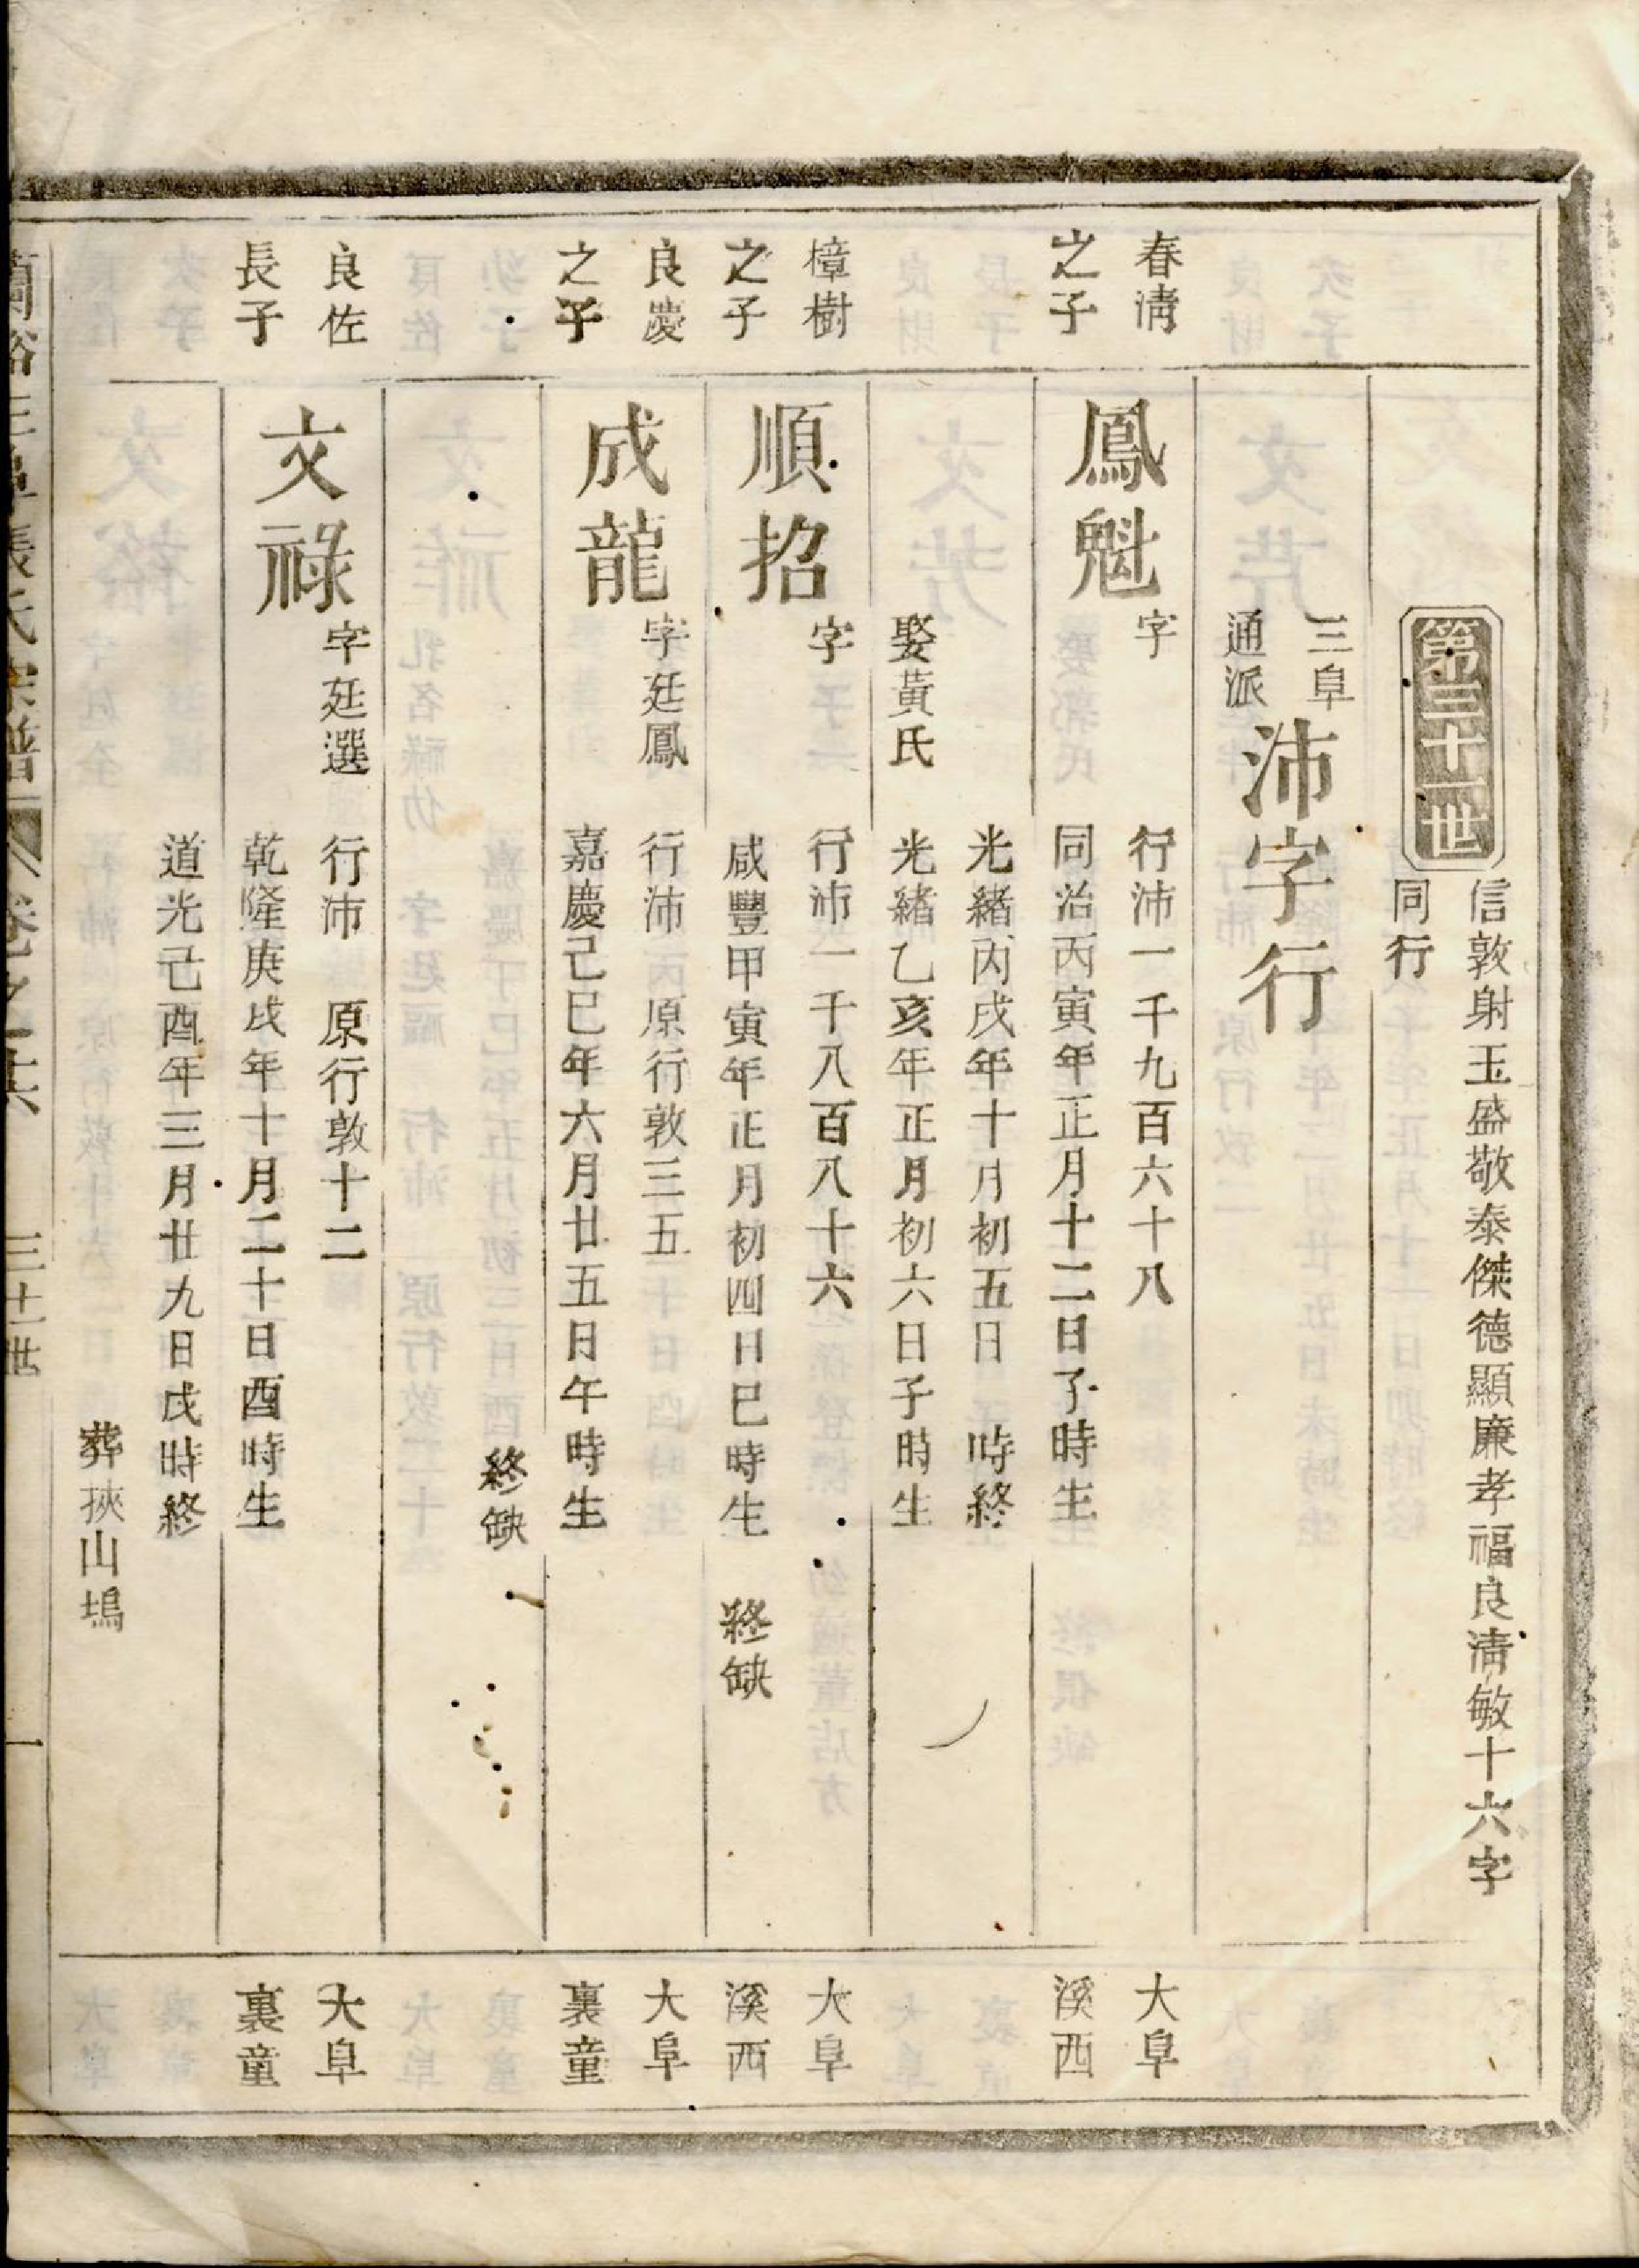 第三十一世
信敦射玉盛敬泰傑德顯廉孝福良清敏十六字
同行
三阜
通派
沛字行
春清
之子
鳳魁
字
行沛一千九百六十八
同治丙寅年正月十二日子時生
光緒丙戌年十月初五日 時終
娶黃氏
光緒乙亥年正月初六日子時生
大阜
溪西
樟樹
之子
順招
字
行沛一千八百八十六
咸豐甲寅年正月初四日巳時生 終缺
大阜
溪西
良慶
之子
成龍
字廷鳳
行沛 原行敦三五
嘉慶己巳年六月廿五日午時生
終缺
大阜
裏童
良佐
長子
文祿
字廷選
行沛 原行敦十二
乾隆庚戌年十月二十日酉時生
道光己酉年三月廿九日戌時終
葬挾山塢
大阜
裏童
張氏宗譜 卷之 三十一世 一